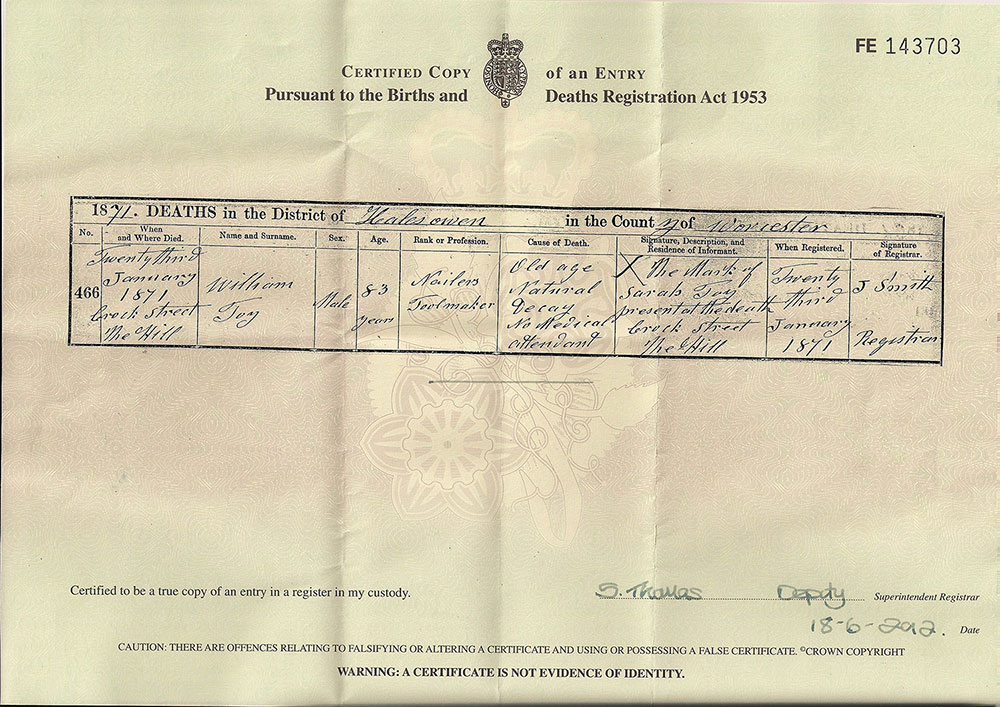 FE 143703
CERTIFIED COPY of an ENTRY
Pursuant to the Births and Deaths Registration Act 1953
1871. DEATHS in the District of Halesowen in the County of Worcester
No. When and Where Died. Name and Surname. Sex. Age. Rank or Profession. Cause of Death. Signature, Description, and Residence of Informant. When Registered. Signature of Registrar.
466
Twenty third
January
1871
Crock Street
The Hill
William
Toy
Male
83
years
Nailers
Toolmaker
Old age
Natural
Decay
No Medical
attendant
X The Mark of
Sarah Toy
present at the death
Crock Street
The Hill
Twenty
third
January
1871
J Smith
Registrar
Certified to be a true copy of an entry in a register in my custody.
S. Thomas Deputy Superintendent Registrar
18-6-2012. Date
CAUTION: THERE ARE OFFENCES RELATING TO FALSIFYING OR ALTERING A CERTIFICATE AND USING OR POSSESSING A FALSE CERTIFICATE. ©CROWN COPYRIGHT
WARNING: A CERTIFICATE IS NOT EVIDENCE OF IDENTITY.